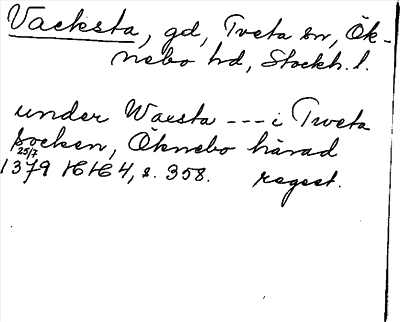 Vacksta, gd, Tveta sn, Ök-
nebo hd, Stockh. l.
under Waesta --- i Tweta
socken, Öknebo härad
25/7
1379 HH 4, s. 358. regest.